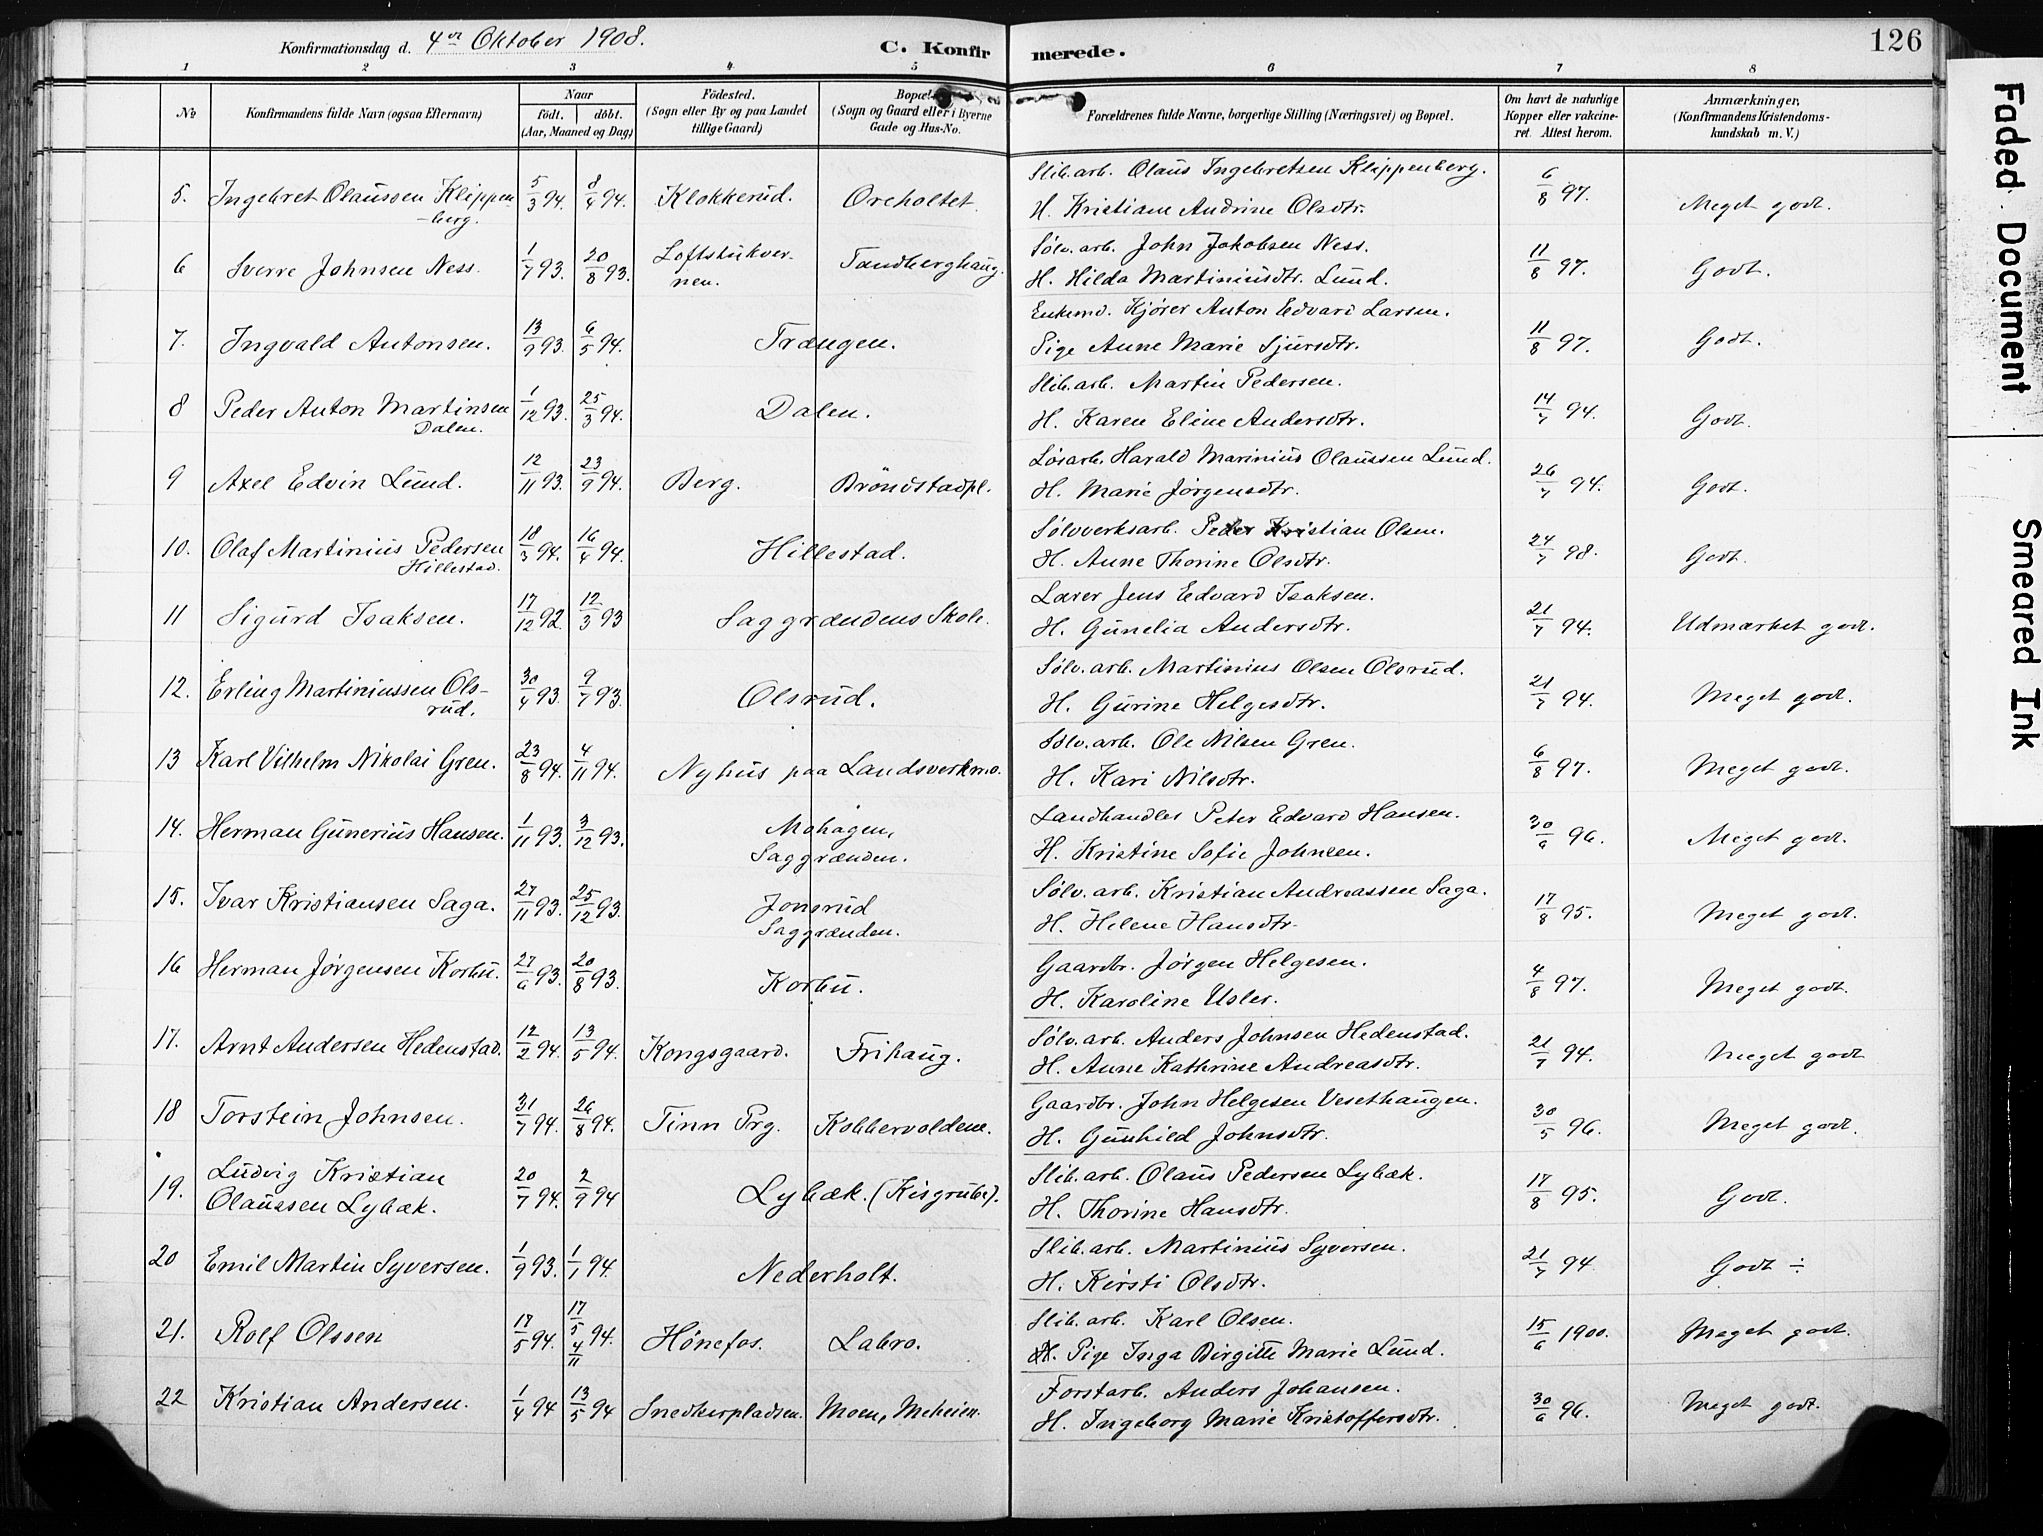 Konfirmationsdag d. 4de Oktober 1908.
C. Konfirmerede.
126
1 2 3 4 5 6 7 8
No
Konfirmandens fulde Navn (ogsaa Efternavn)
Naar
født. døbt.
(Aar, Maaned og Dag)
Fødested.
(Sogn eller By og paa Landet
tillige Gaard)
Bopæl
(Sogn og Gaard eller i Byerne
Gade og Hus-No.
Forældrenes fulde Navne, borgerlige Stilling (Næringsvei) og Bopæl.
Om havt de naturlige
Kopper eller vakcine-
ret. Attest herom.
Anmærkninger,
(Konfirmandens Kristendoms-
kundskab m. V.)
5. Ingebret Olaussen Klippen-
berg. 5/3 94. 8/4 94. Klokkerud. Oreholtet.
Slib.arb. Olaus Ingebretsen Klippenberg.
H. Kristiane Andrine Olsdtr. 6/8 97. Meget godt.
6 Sverre Johnsen Ness. 1/7 93. 20/8 93. Loftstukver-
nen. Tandberghaug.
Sølv.arb. John Jakobsen Ness.
H. Hilda Martiniusdtr. Lund. 11/8 97. Godt.
7. Ingvald Antonsen. 13/9 93. 6/5 94. Trangen.
Enkemd. Kjører Anton Edvard Larsen.
Pige Anne Marie Sjursdtr. 11/8 97. Godt.
8 Peder Anton Martinsen
Dalen. 1/12 93. 25/3 94. Dalen.
Slib.arb. Martin Pedersen.
H. Karen Eline Andersdtr. 14/7 94. Godt.
9 Axel Edvin Lund. 12/11 93. 23/9 94. Berg. Brøndstadpl.
Løsarb. Harald Marinius Olaussen Lund.
H. Marie Jørgensdtr. 26/7 94. Godt.
10. Olaf Martinius Pedersen
Hillestad. 18/3 94. 16/4 94. Hillestad.
Sølvverksarb. Peder Kristian Olsen.
H. Anne Thorine Olsdtr. 24/7 98. Godt.
11 Sigurd Isaksen. 17/12 92. 12/3 93 Saggrændens Skole.
Lærer Jens Edvard Isaksen.
H. Gunelia Andersdtr. 21/7 94. Udmærket godt.
12. Erling Martiniussen Ols-
rud. 30/4 93. 9/7 93. Olsrud.
Sølv.arb. Martinius Olsen Olsrud.
H. Gurine Helgesdtr. 21/7 94. Meget godt.
13 Karl Vilhelm Nikolai Gren. 23/8 94. 4/11 94. Nyhus paa Landsverkmo.
Sølv.arb. Ole Nilsen Gren.
H. Kari Nilsdtr. 6/8 97. Meget godt.
14. Herman Gunerius Hansen. 1/11 93. 3/12 93. Mohagen,
Saggrænden.
Landhandler Peter Edvard Hansen.
H. Kristine Sofie Johnsen. 30/6 96. Meget godt.
15. Ivar Kristiansen Saga. 27/11 93. 25/12 93. Jonsrud
Saggrænden.
Sølv.arb. Kristian Andreassen Saga.
H. Helene Hansdtr. 17/8 95. Meget godt.
16 Herman Jørgensen Korbu. 27/6 93. 20/8 93. Korbu.
Gaardbr. Jørgen Helgesen.
H. Karoline Usler. 4/8 97. Meget godt.
17. Arnt Andersen Hedenstad. 12/2 94. 13/5 94. Kongsgaard. Frihaug.
Sølv.arb. Anders Johnsen Hedenstad.
H. Anne Kathrine Andreasdtr. 21/7 94. Meget godt
18 Torstein Johnsen. 31/7 94. 26/8 94. Tinn Prg. Kobbervoldene.
Gaardbr. John Helgesen Vesethaugen.
H. Gunhild Johnsdtr. 30/5 96. Meget godt.
19. Ludvig Kristian
Olaussen Lybæk. 20/7 94. 2/9 94 Lybæk. (Kisgrube).
Slib.arb. Olaus Pedersen Lybæk.
H. Thorine Hansdtr. 17/8 95. Godt.
20 Emil Martin Syversen. 1/9 93. 1/1 94. Nederholt.
Slib.arb. Martinius Syversen.
H. Kirsti Olsdtr. 21/7 94 Godt ÷
21. Rolf Olssen 17/5 94. 17/5 4/11 94. Hönefos. Labro.
Slib.arb. Karl Olsen.
H. Pige Inga Birgitte Marie Lund. 15/6 1900. Meget godt.
22 Kristian Andersen. 1/4 94 13/5 94 Snedkerpladsen. Moen, Meheien.
Forstarb. Anders Johansen.
H. Ingeborg Marie Kristoffersdtr. 30/6 96. Meget godt.
Faded Document
Smeared Ink